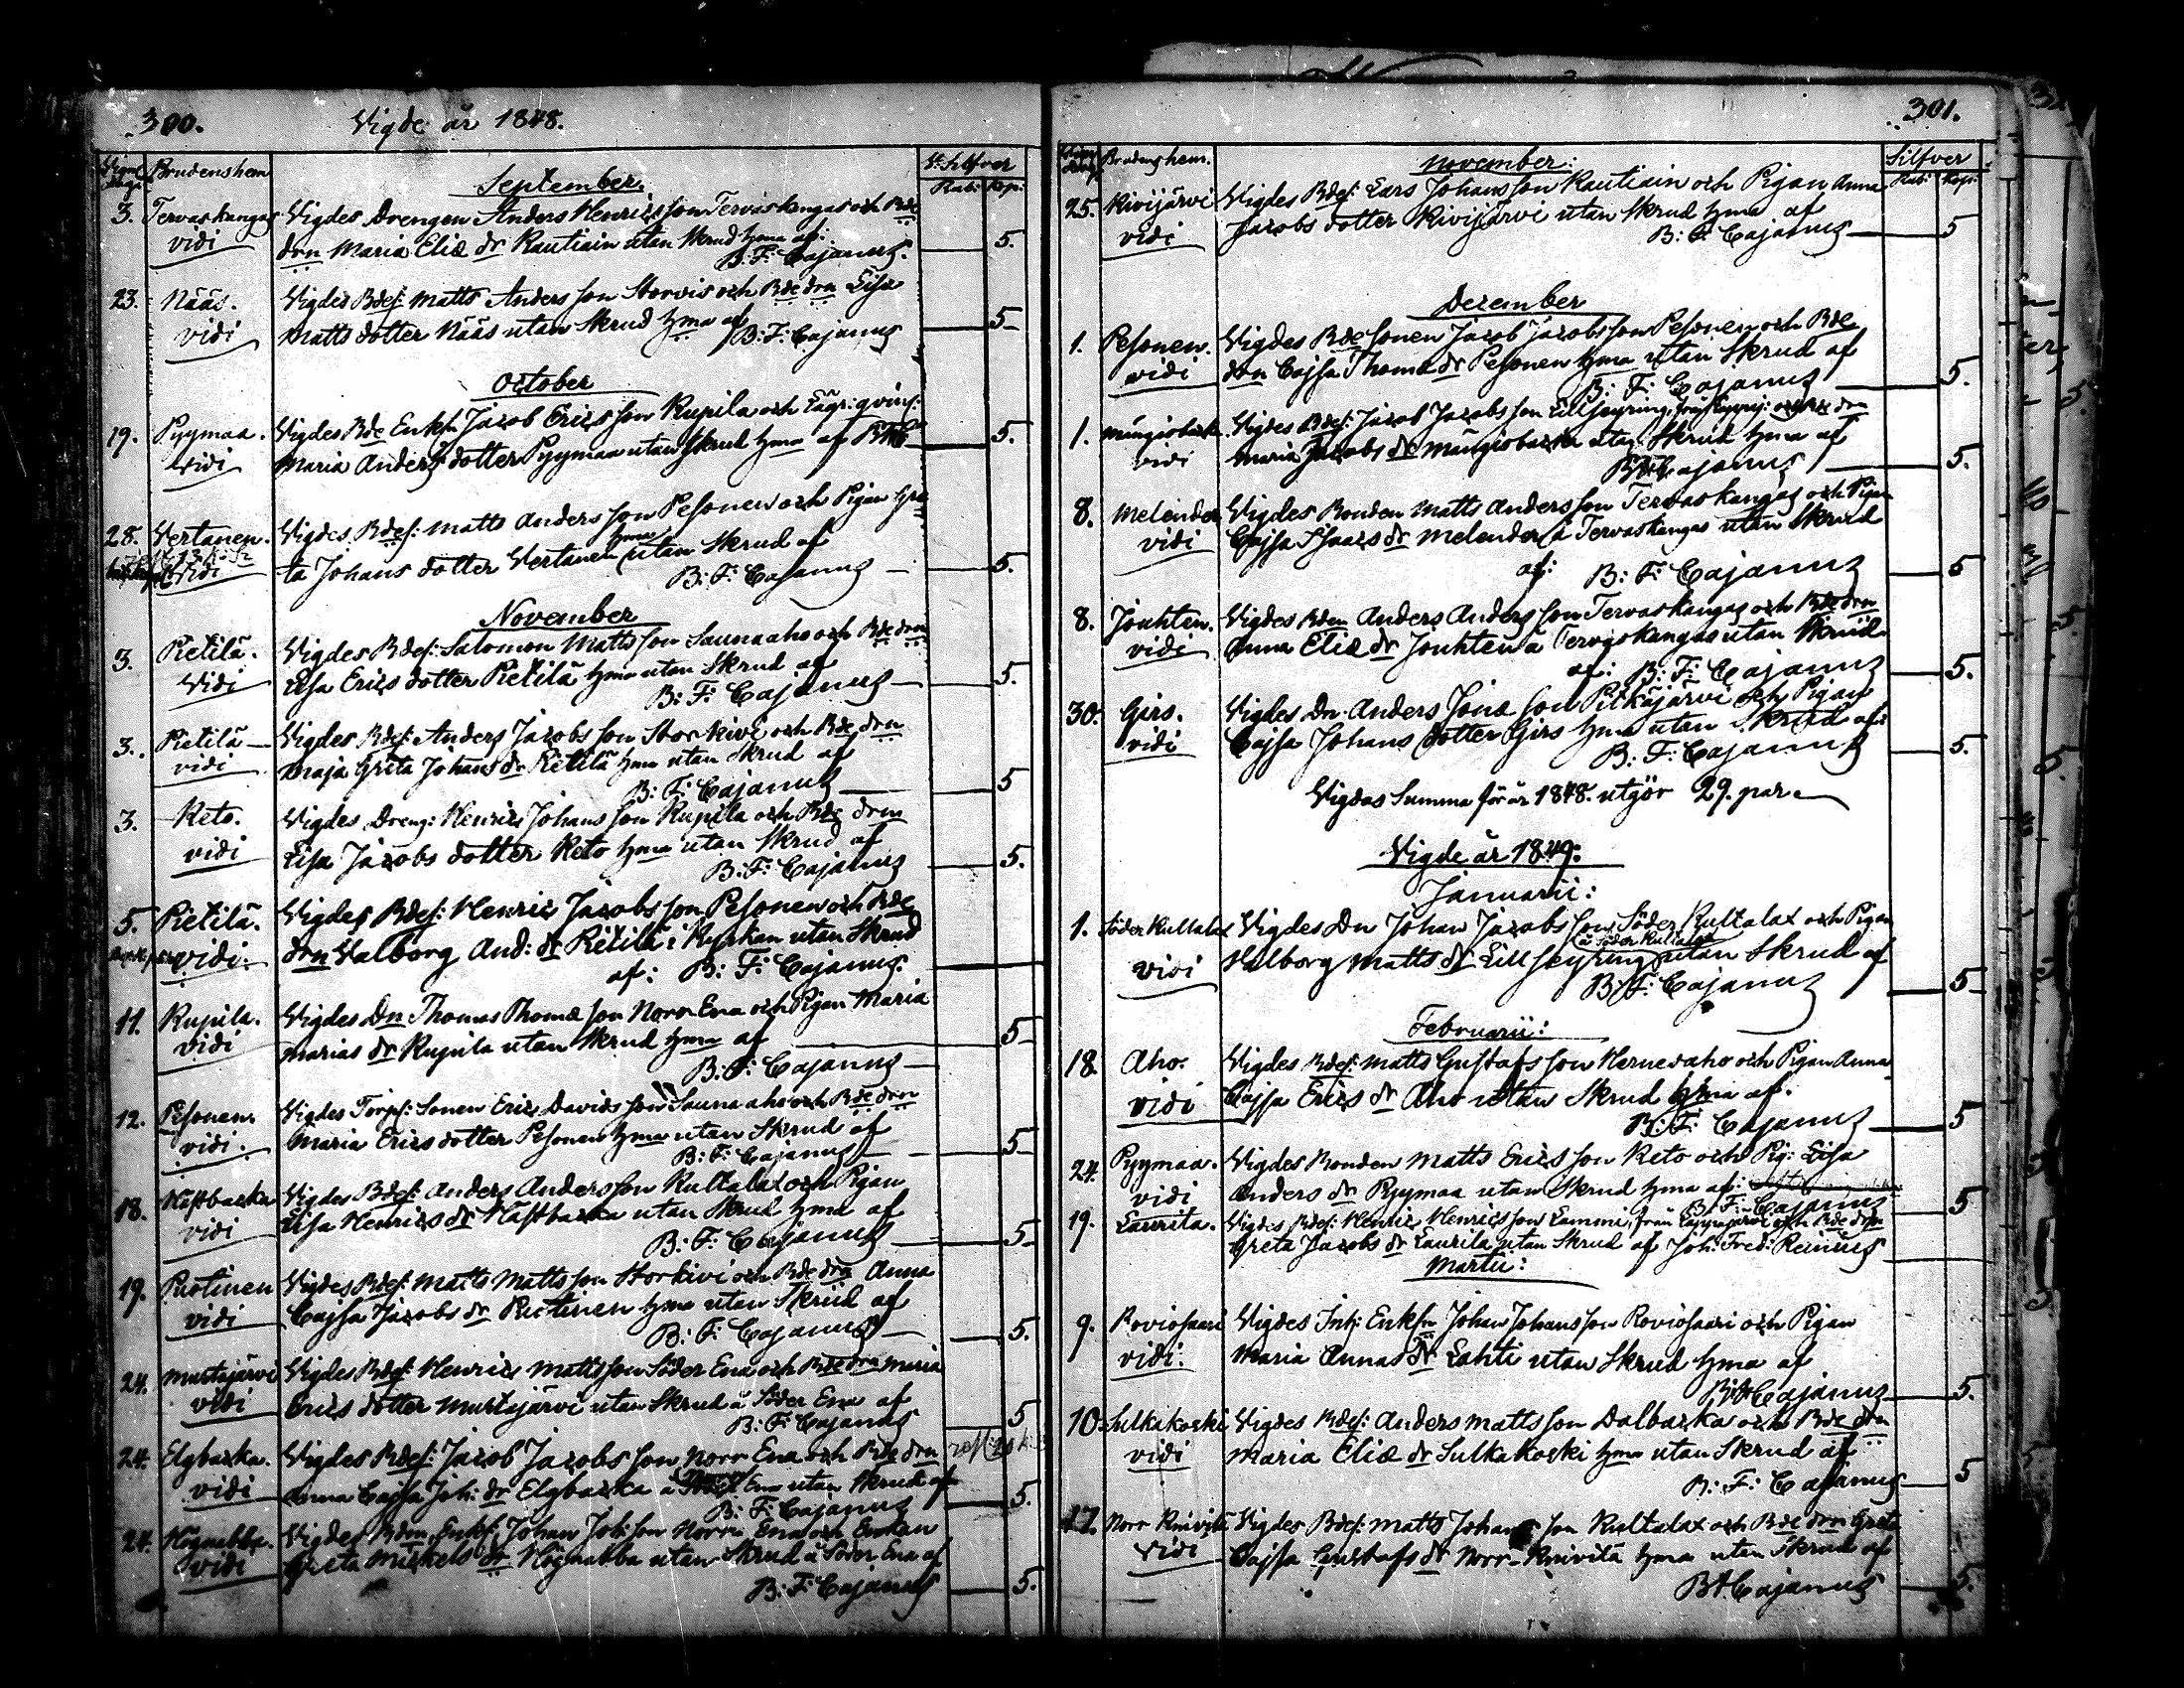 300. Vigde år 1848.
Brudenshem Silfver
Rub: Kop:
September.
3. Tervaskangas Vigdes Drengen Anders Henricsson Tervaskangas och Bde
vidi don Maria Eliæ dr Rautiain utan Skrud hma af:
B: F: Cajanus. 5.
23. Nääs. Vigdes Bdes: Matts Andersson Storvis och Bde drn Lisa
vidi Matts dotter Nääs utan Skrud hma af
B: F: Cajanus 5
October
19. Pyymaa. Vigdes Bde Enkn Jacob Ericsson Rupila och
Vidi Maria Anders dotter Pyymaa utan Skrud hma af 5.
28. Vertanen. Vigdes Bdes: Matts Andersson Pesonen och Pigan Gre
Vidi ta Johans dotter Vertanen hma utan Skrud af
B: F: Cajanus 5.
November
3. Pietilä. Vigdes Bdes: Salomon Mattsson Saunaaho och Bde drn
Vidi Lisa Erics dotter Pietilä hma utan Skrud af
B: F: Cajanus 5.
3. Pietilä Vigdes Bdes: Anders Jacobsson Storkivi och Bde drn
vidi Maja Greta Johans dr Pietilä hma utan Skrud af
B: F: Cajanus 5
3. Keto. Vigdes Dreng: Henric Johansson Rupila och Bde drn
vidi Lisa Jacobs dotter Keto hma utan Skrud af
B: F: Cajanus 5.
5. Pietilä. Vigdes Bdes: Henric Jacobsson Pesonen och Bde
vidi. drn Valborg And: dr Pietilä i Kyrkan utan Skrud
af: B: F: Cajanus.
11. Rupila. Vigdes Dn Thomas Thomæson Norr Ena och Pigan Maria
vidi Marias dr Rupila utan Skrud hma af 5
B: F: Cajanus
12. Pesonen. Vigdes Torps: Sonen Eric Davidsson Saunaaho och Bde drn
vidi. Maria Erics dotter Pesonen hma utan Skrud af
B: F: Cajanus 5
18. Häftbacka Vigdes Bdes: Anders Andersson Kultalax och Pigan
vidi Lisa Henrics dr Häftbacka utan Skrud hma af
B: F: Cajanus 5
19. Vigdes Bdes: Matts Mattsson Storkivi och Bde dra Anna
vidi Cajsa Jacobs dr hma utan Skrud af
B: F: Cajanus 5.
24. Murtojärvi Vigdes Bdes: Henric Mattsson Söder Ena och Bde dra Maria
vidi Erics dotter Murtojärvi utan Skrud å Söder Ena af
B: F: Cajanus 5
24. Elgbacka. Vigdes Bdes: Jacob Jacobsson Norr Ena och Bde drn
vidi Anna Cajsa Joh: dr Elgbacka å Ena utan Skrud af
B: F: Cajanus 5.
24. Högnabba. Vigdes Bdn Enks: Johan Joh: son Norr Ena och Enkan
vidi Greta Mickels dr Högnabba utan Skrud å Söder Ena af
B: F: Cajanus 5.
301.
Brudenshem. Silfver
Rub: Kop:
November:
25. Kivijärvi Vigdes Bdes: Lars Johansson Rautiain och Pigan Anna
vidi Jacobs dotter Kivijärvi utan Skrud hma af
B: F: Cajanus 5
December
1. Pesonen. Vigdes Bde Sonen Jacob Jacobsson Pesonen och Bde
vidi drn Cajsa Thomæ dr Pesonen hma utan Skrud af
B: F: Cajanus 5.
1. Vigdes Bdes: Jacob Jacobsson Lillseyring,
vidi Maria Jacobs dr utan Skrud hma af
B: F: Cajanus 5.
8. Melender Vigdes Bonden Matts Andersson Tervaskangas och Pigan
vidi Cajsa Isaacs dr Melender å Tervaskangas utan Skrud
af: B: F: Cajanus 5
8. Jouhten. Vigdes Bden Anders Andersson Tervaskangas och Bde drn
vidi Anna Eliæ dr Jouhten å Tervaskangas utan Skrud
af: B: F: Cajanus 5.
30. Girs. Vigdes Dn. Anders Jonæ son Pitkäjärvi och Pigan
vidi Cajsa Johans dotter Girs hma utan Skrud af:
B: F: Cajanus 5.
Vigdas Summa för år 1848. utgör 29. par.
Vigde år 1849.
Januarii:
1. Söder Kultalax Vigdes Dn Johan Jacobsson Söder Kultalax och Pigan
å Söder Kultalax
vidi Valborg Matts dr Lillseyring utan Skrud af
B: F: Cajanus 5
Februarii:
18. Aho. Vigdes Bdes: Matts Gustafsson Hernesaho och Pigan Anna
vidi Cajsa Erics dr Aho utan Skrud hma af.
B: F: Cajanus 5
24. Pyymaa. Vigdes Bonden Matts Ericsson Keto och Pig: Lisa
vidi Anders dr Pyymaa utan Skrud hma af:
B: F: Cajanus 5
19. Laurila. Vigdes Bdes: Henric Henricsson Lammi, från Lappajärvi och Bde drn
Greta Jacobs dr Laurila utan Skrud af Joh: Fred: Reinius
Martii:
9. Roviosaari Vigdes Inh: Enksn Johan Johansson Roviosaari och Pigan
vidi. Maria Annas dr Lahti utan Skrud hma af
B: F: Cajanus 5.
10. Sulkakoski Vigdes Bdes: Anders Mattsson Dalbacka och Bde drn
vidi Maria Eliæ dr Sulkakoski hma utan Skrud af
B: F: Cajanus 5
17. Norr Knivilä Vigdes Bdes: Matts Johansson Kultalax och Bde drn Greta
Vidi Cajsa Gustafs dr Norr-Knivilä hma utan Skrud af
B: F: Cajanus 5.